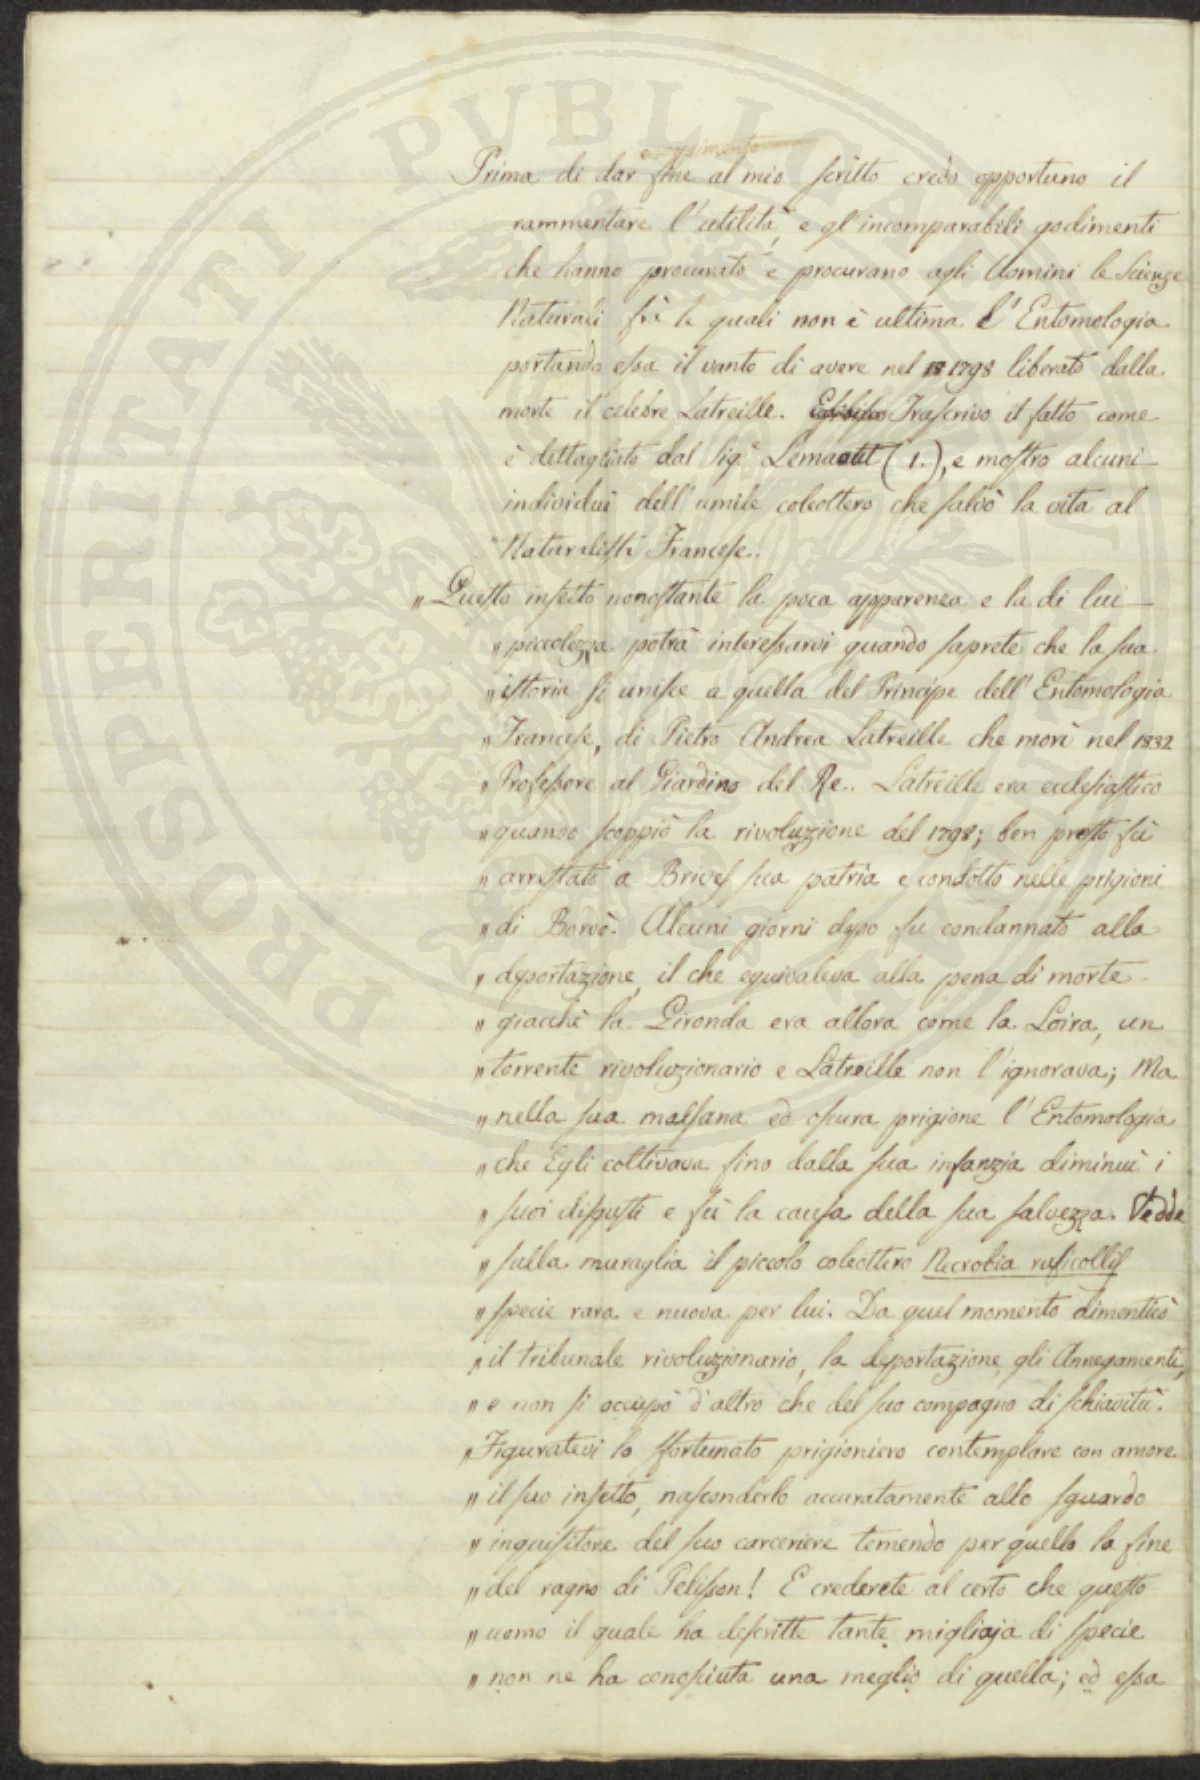 PROSPERITATI PVBLICAE
Prima di dar fine al mio scritto credo opportuno il
rammentare l'utilità, e gl'incomparabili godimenti
che hanno procurato e procurano agli Uomini le Scienze
Naturali frà le quali non è ultima l'Entomologia
portando essa il vanto di avere nel 1798 liberato dalla
morte il celebre Latreille. Trascrivo il fatto come
è dettagliato dal Sig.r (1.), e mostro alcuni
individui dell'umile coleottero che salvò la vita al
Naturalista Francese..
" Questo insetto nonostante la poca apparenza e la di lui
" piccolezza potrà interessarvi quando saprete che la sua
" istoria si unisce a quella del Principe dell'Entomologia
" Francese, di Pietro Andrea Latreille che morì nel 1832
" Professore al Giardino del Re.. Latreille era ecclesiastico
" quando scoppiò la rivoluzione del 1798; ben presto fù
" arrestato a Brives sua patria e condotto nelle prigioni
" di Bordò. Alcuni giorni dopo fu condannato alla
" deportazione, il che equivaleva alla pena di morte
" giacchè la Gironda era allora come la Loira, un
" torrente rivoluzionario e Latreille non l'ignorava; Ma
" nella sua malsana ed oscura prigione l'Entomologia
" che Egli coltivava fino dalla sua infanzia diminuì i
" suoi disgusti e fù la causa della sua salvezza. Vedde
" sulla muraglia il piccolo coleottero Necrobia ruficollis
" specie rara e nuova per lui. Da quel momento dimenticò
" il tribunale rivoluzionario, la deportazione, gli Annegamente,
" e non si occupò d'altro che del suo compagno di schiavitù.
" Figuratevi lo sfortunato prigioniero contemplare con amore
" il suo insetto, nasconderlo accuratamente allo sguardo
" inquisitore del suo carceriere temendo per quello la fine
" del ragno di Pelisson! E crederete al certo che questo
" uomo il quale ha descritte tante migliaja di specie
" non ne ha conosciuta una meglio di quella; ed essa